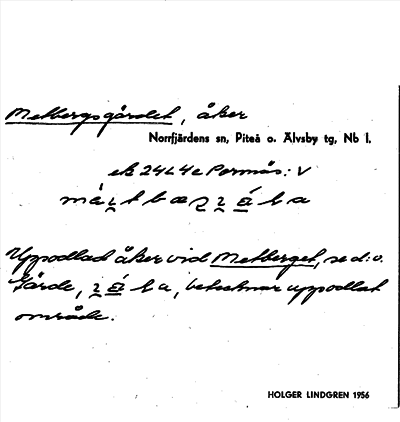 Metbergsgärdet, åker
Norrfjärdens sn, Piteå o. Älvsby tg, Nb l.
ek 24L4e Pormås: V
Uppodlad åker vid Metberget, se d:o.
Gärde, betecknar uppodlat
område.
HOLGER LINDGREN 1956